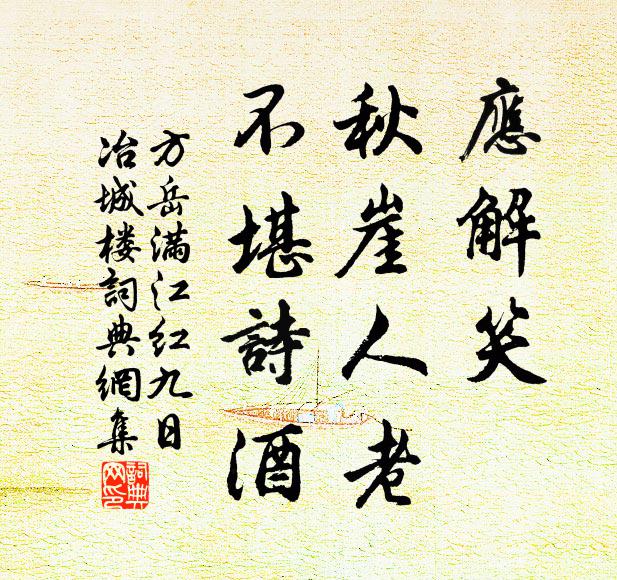 應解笑
秋崖人老
不堪詩酒
方岳滿江红九日
冶城楼詞典網集
詞典
网印